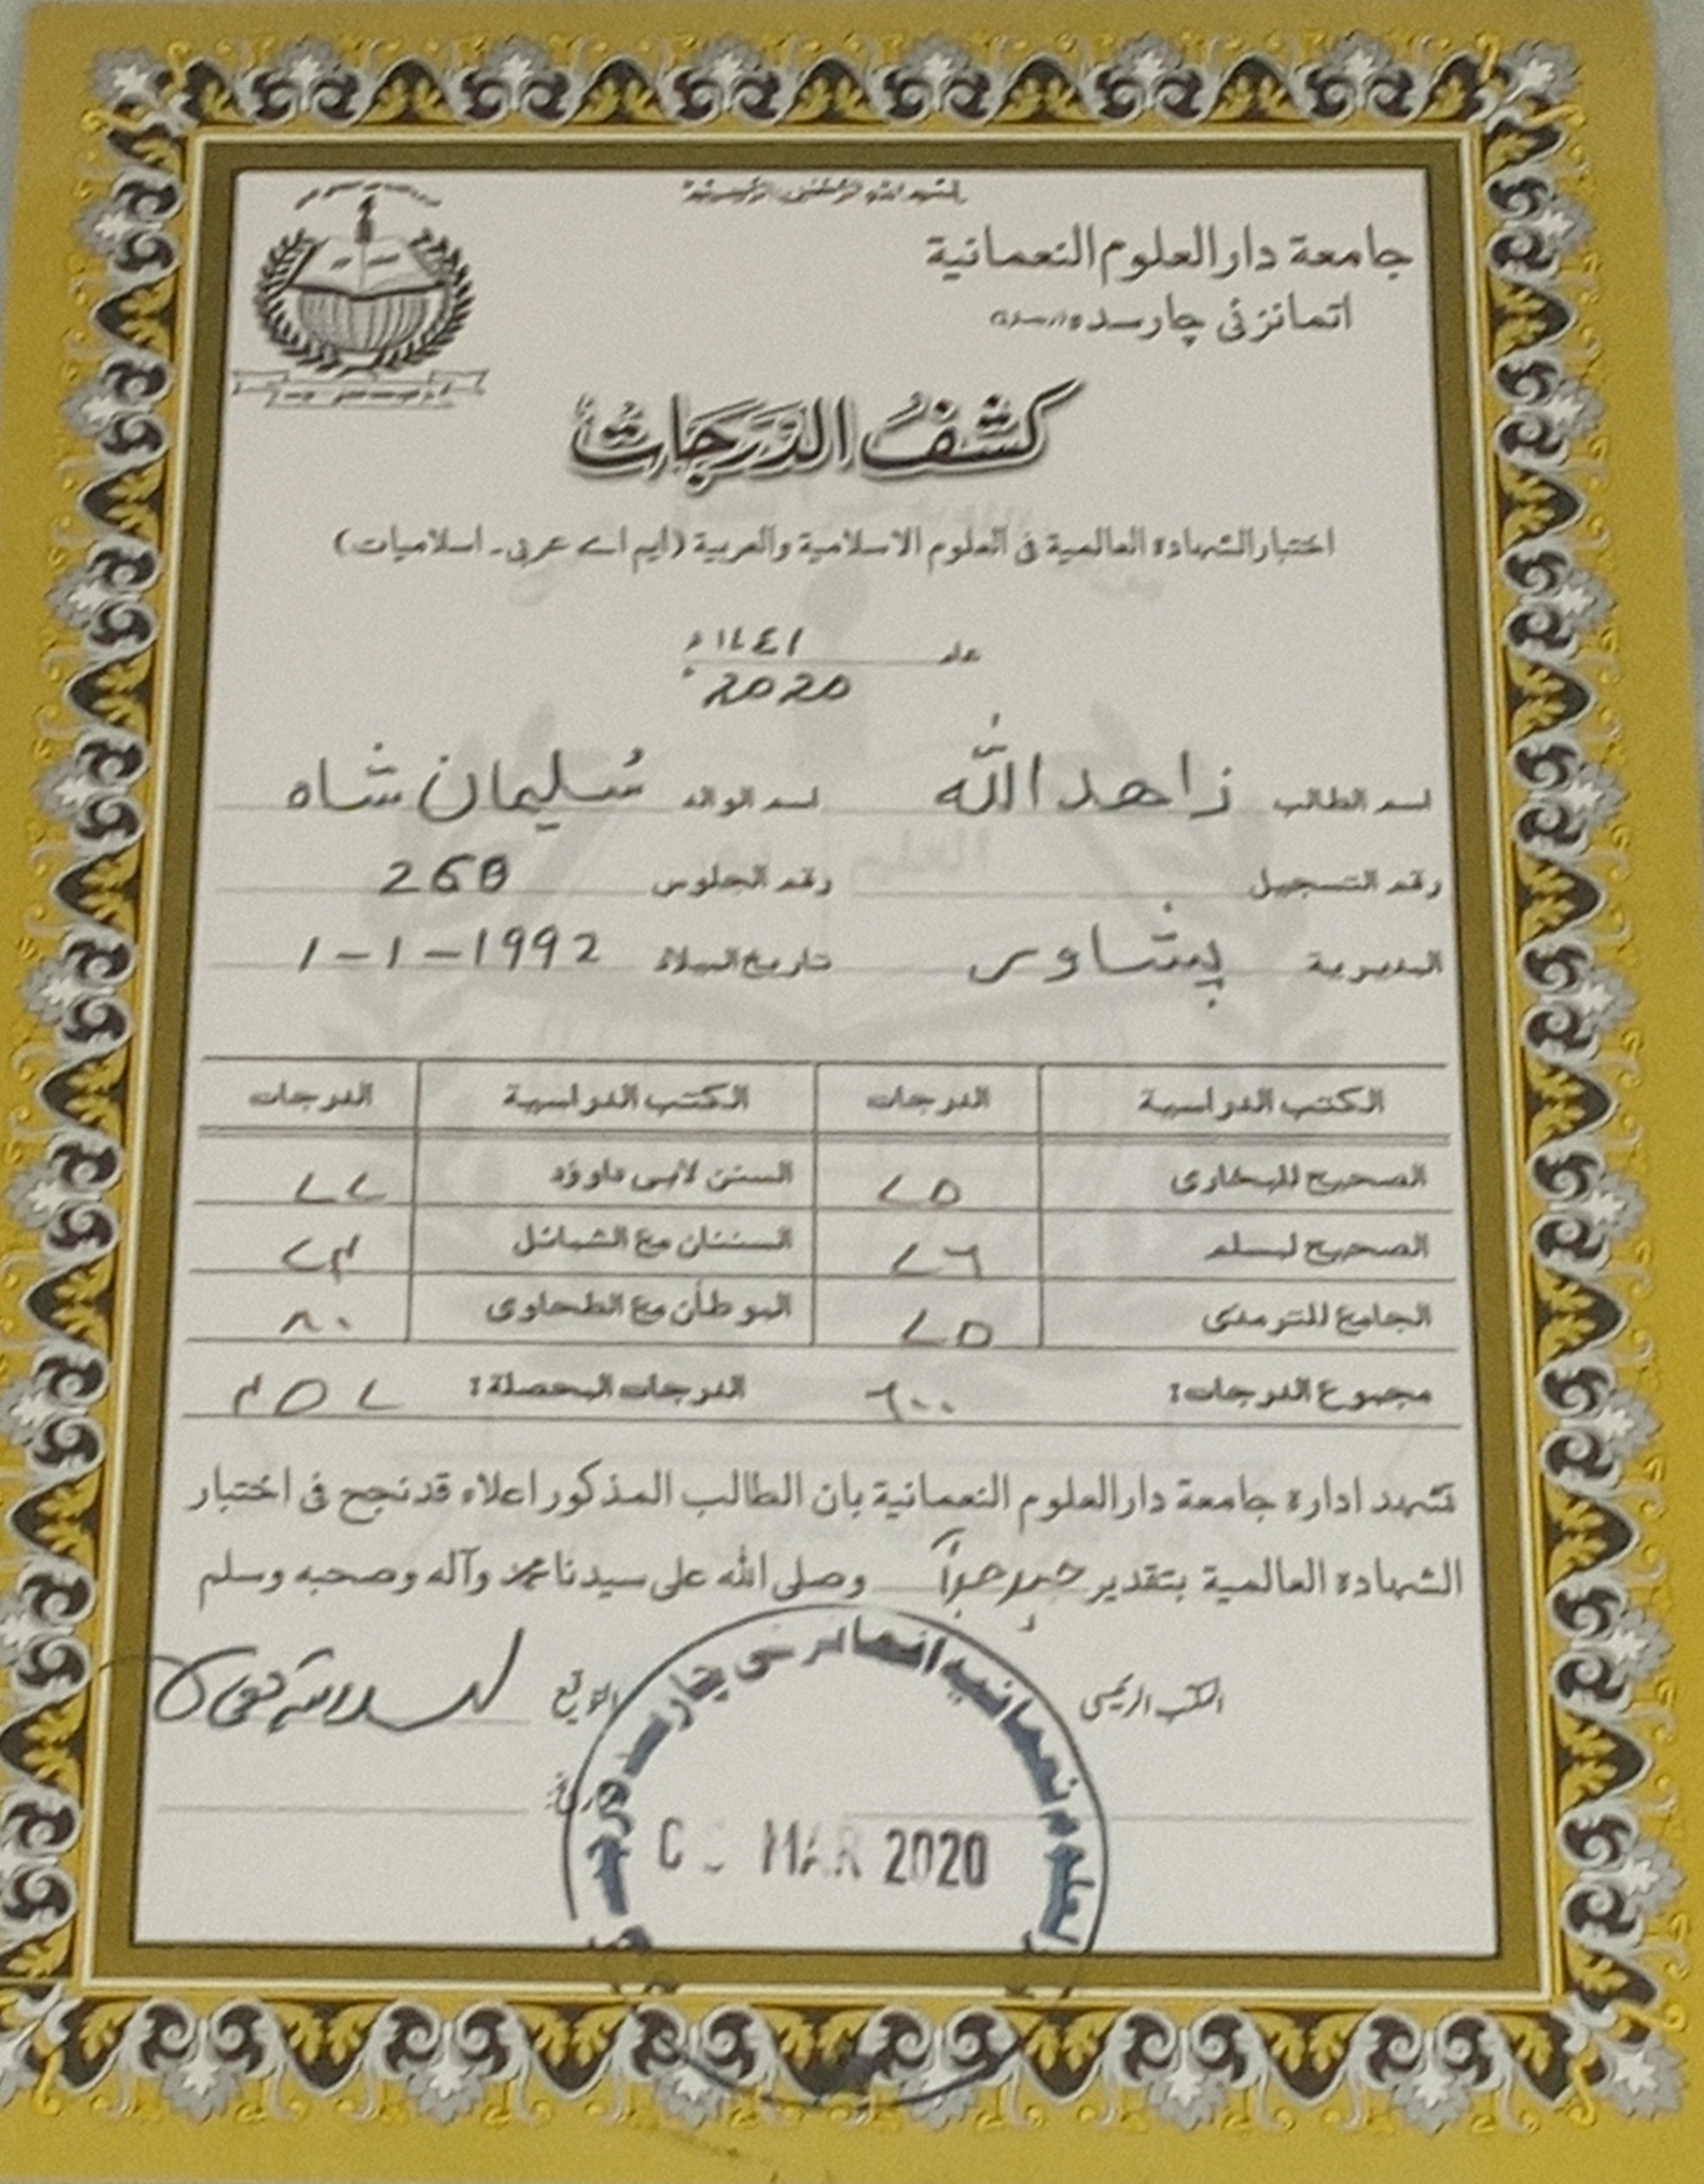 جامعة دارالعلوم النعمانية
اتمانزئی چارسده
كشف الدَّرَجَات
اختبارالشهادة العالمية فى العلوم الاسلامية والعربية (ايم اے عربى۔ اسلاميات)
عام ١٤٤١ھ
2020ء
اسم الطالب زاهد الله اسم الوالد سُليمان شاه
رقم التسجيل رقم الجلوس 268
المديرية پشاور تاريخ الميلاد 1-1-1992
الكتب الدراسية الدرجات الكتب الدراسية الدرجات
الصحيح للبخارى ۷۵ السنن لأبى داوؤد ۷۷
الصحيح لمسلم ۷۶ السننان مع الشمائل ۷۴
الجامع للترمذى ۷۵ الموطأن مع الطحاوى ۸۰
مجموع الدرجات: ۶۰۰ الدرجات المحصلة: ۴۵۷
تشهد ادارة جامعة دارالعلوم النعمانية بان الطالب المذكور اعلاه قدنجح فى اختبار
الشهادة العالمية بتقدير جيد جداً وصلى الله على سيدنا محمد وآله وصحبه وسلم
المكتب الرئيسى التوقيع
MAR 2020